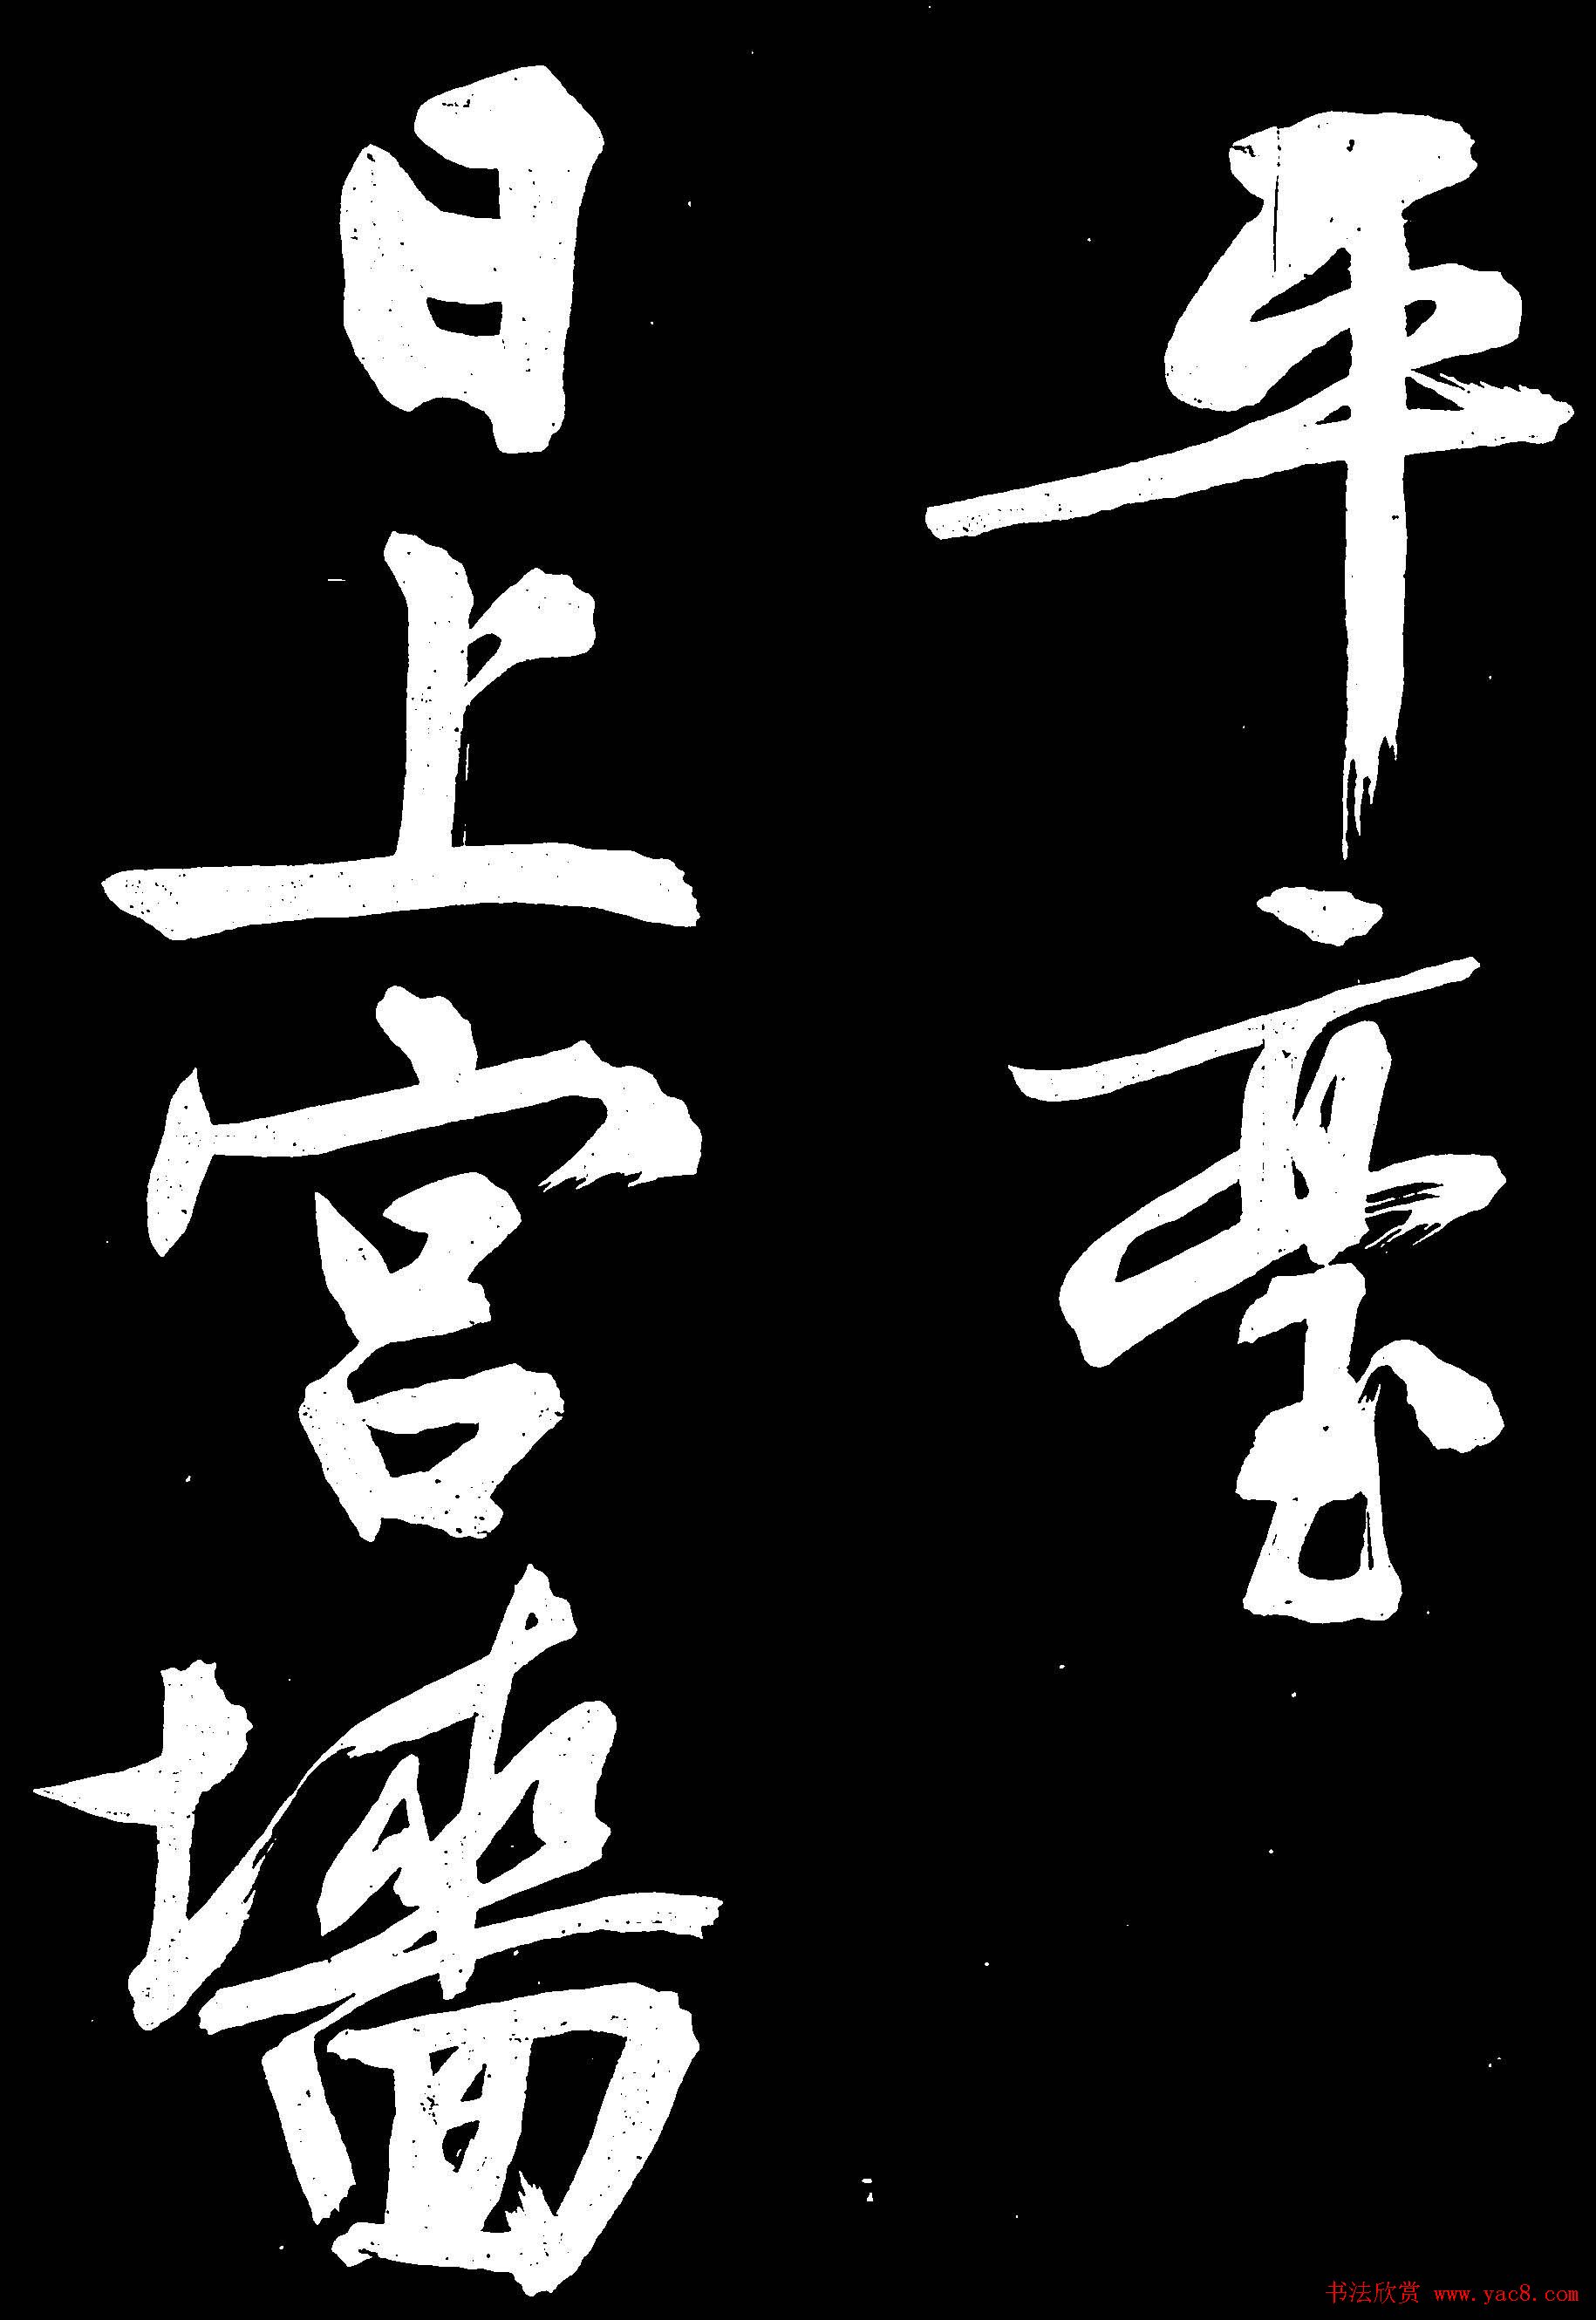 年臺
日上宮墻
书法欣赏 www.yac8.com